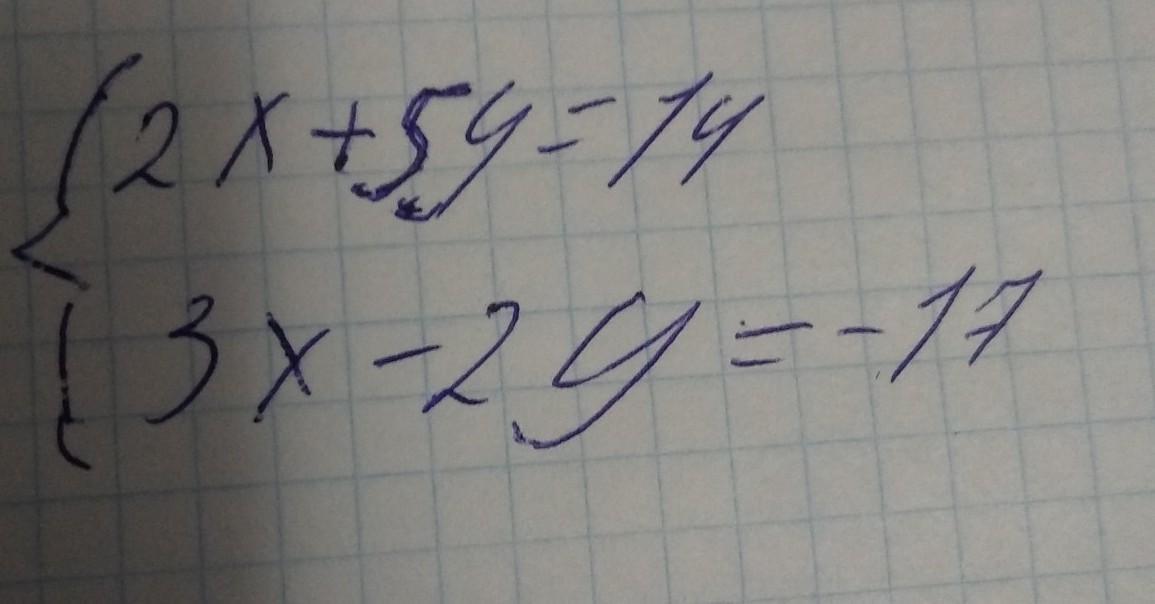 2x+5y=14
3x-2y=-17